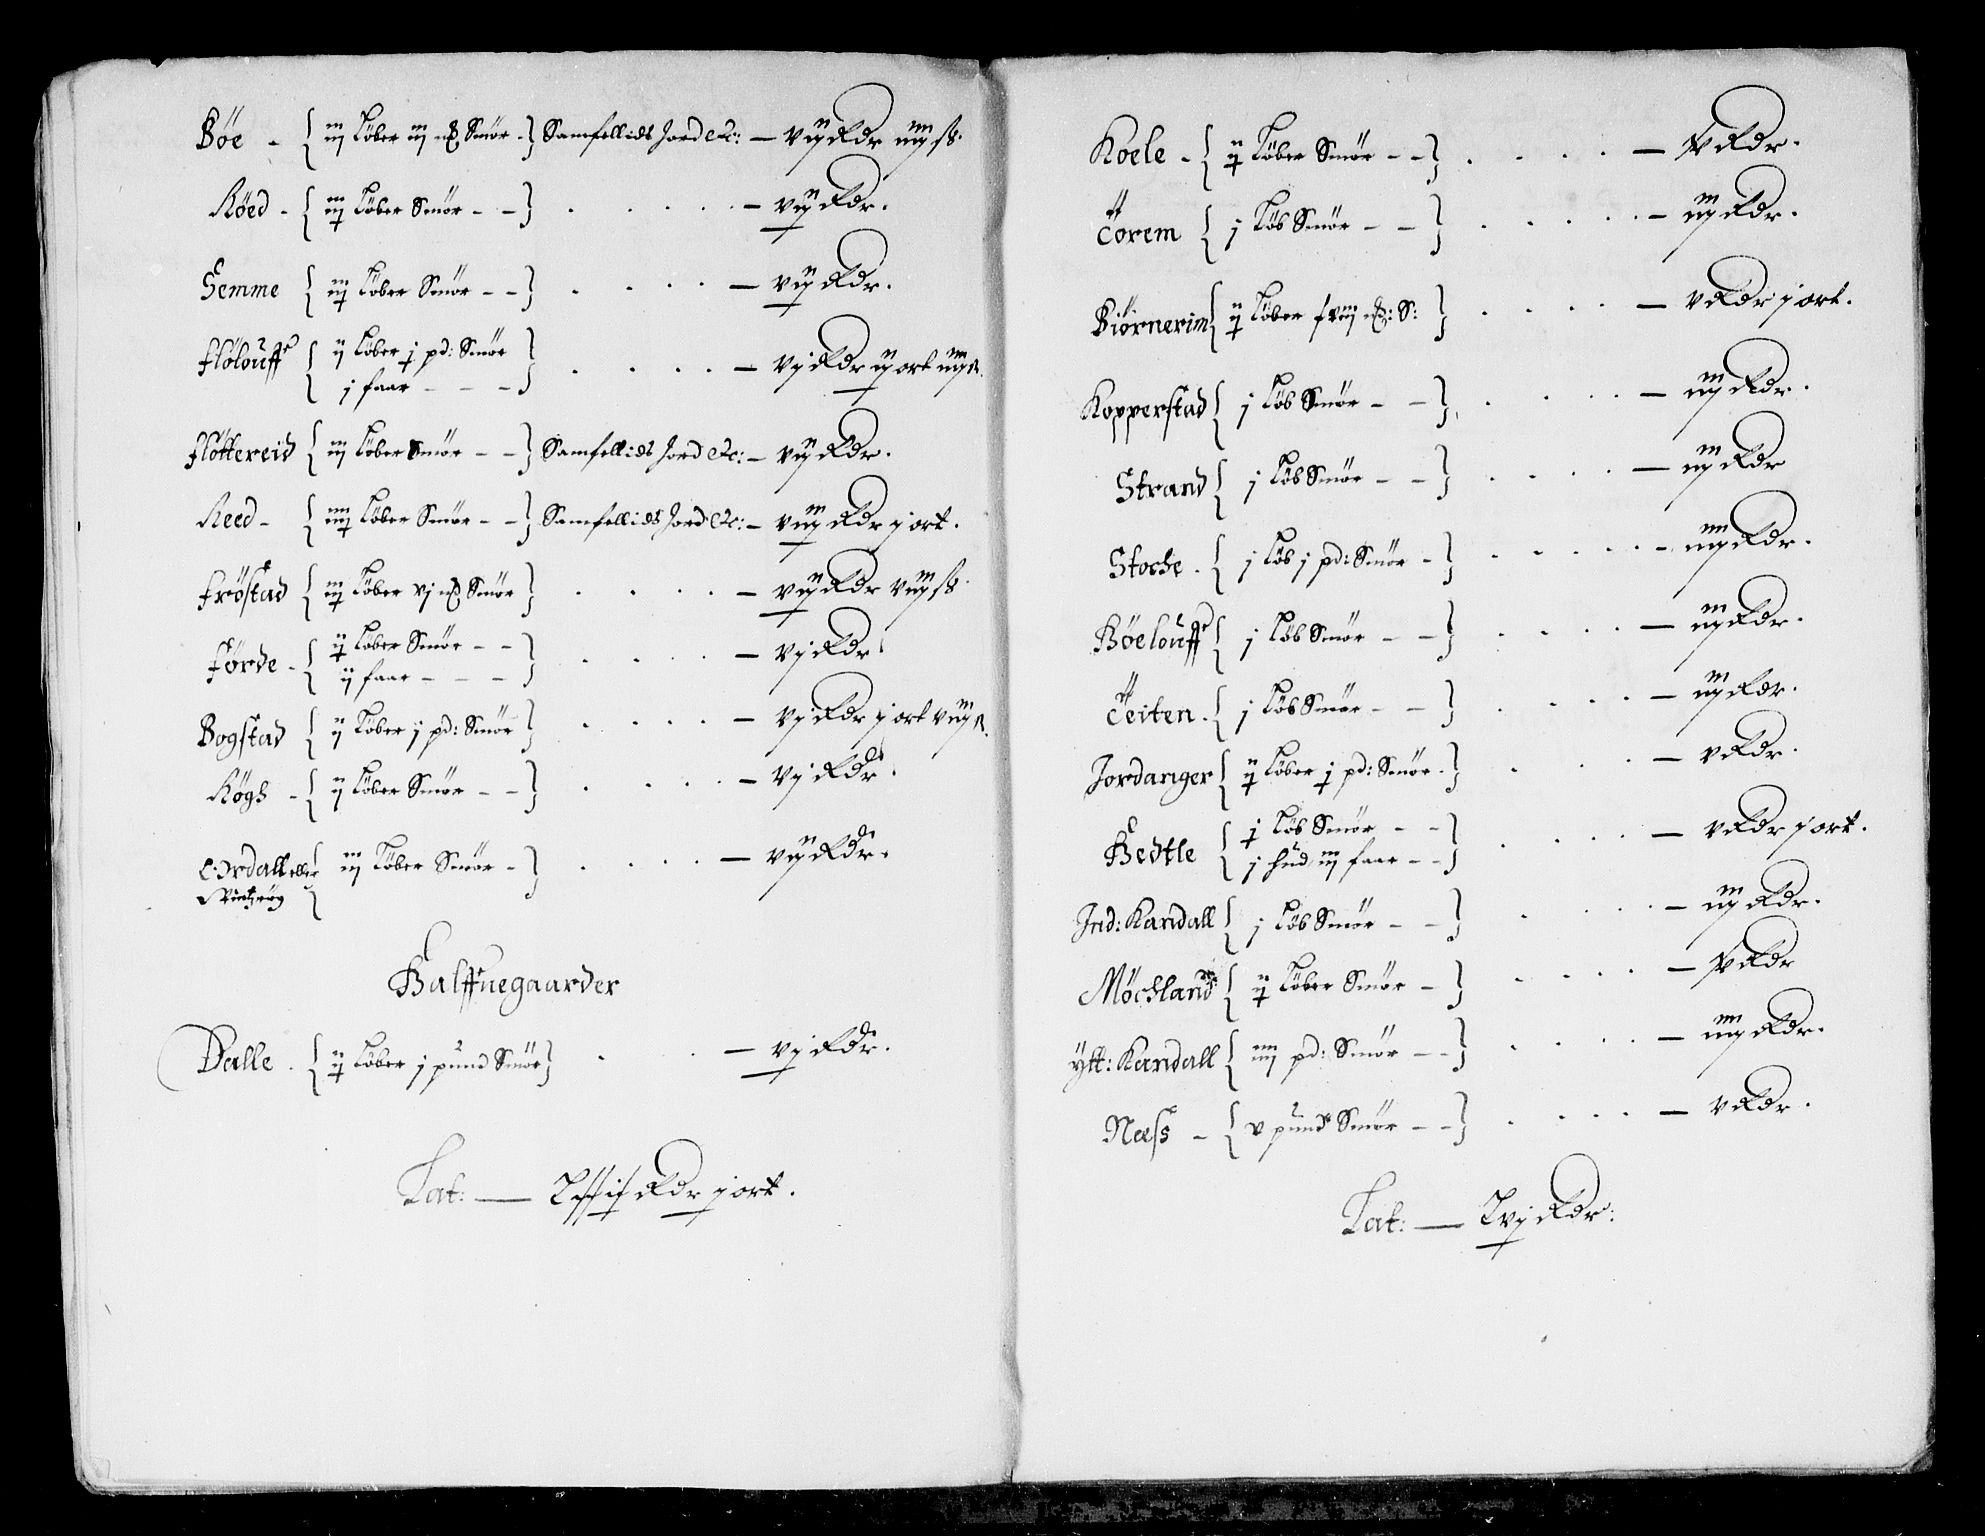 Bøe - { iij Løber iij m℔ Smør - } Samfellids Jord etc: — vij Rdr iiij ſs.
Røed - { iij Løber Smør - - } — vij Rdr.
Hemme { iij Løber Smør - - } — vij Rdr.
Flølouff { ij Løber j pd: Smør
j faar - - - } — vj Rdr ij ort iiij s.
Fløttereid { iij Løber Smør - - } Samfellids Jord etc: — vij Rdr.
Reed - { iiij Løber Smør - - } Samfellids Jord etc: — viij Rdr j ort.
Frøstad { iij Løber vj m℔ Smør } — vij Rdr viij ſs
Førde - { ij Løber Smør - -
ij faar - - - } — vj Rdr
Bogstad { ij Løber j pd: Smør } — vj Rdr j ort viij s.
Høgh - { ij Løber Smør - - } — vj Rdr.
Ordall eller
{ iij Løber Smør - } — vij Rdr.
Halffuegaarder
Dalle . { ij Løber j pund Smør } — vj Rdr.
Lat: — Rdr j ort.
Koele - { ij Løber Smør - - } — v Rdr.
Torem { j Løb Smør - - } — iij Rdr.
Biørnerim { ij Løber S: } — v Rdr j ort.
Kopperstad { j Løb Smør - - } — iij Rdr.
Strand { j Løb Smør - - } — iij Rdr
Stoche . { j Løb j pd: Smør - } — iiij Rdr.
Bøelouff { j Løb Smør - - } — iij Rdr.
Teiten . { j Løb Smør - - } — iij Rdr.
Jordanger { ij Løber j pd: Smør . } — v Rdr.
Hedtle { j Løb Smør - -
j hud iij faar - - } — v Rdr j ort.
Ind: Kandall { j Løb Smør - - } — iij Rdr.
Møchland { ij Løber Smør - } — v Rdr
ÿtt: Kandall { iiij pd: Smør - - } — iiij Rdr.
Næſs - { v pund Smør - - } — v Rdr.
Lat: — Lvj Rdr: